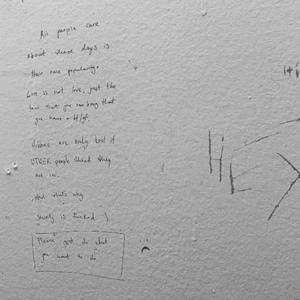 All people care
about these days is
their own popularity.
Love is not love, just the
fact that you can brag that
you have a bf/gf.
Visions are only cool if
OTHER people think they
are so.
And that's why
society is fucked :)
Please just do what
you want to do
Hi